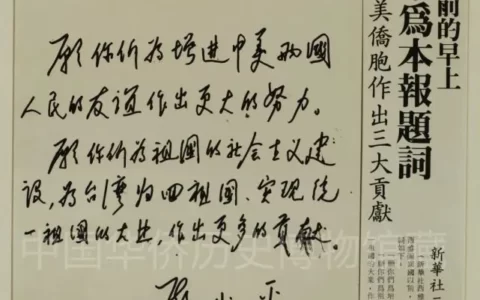 願你们为增进中美两國
人民的友谊作出更大的努力。
願你们为祖國的社会主义建
设，为台湾归回祖国、实现统
一祖国的大业，作出更多的貢献。
小平
前的早上
爲本報題詞
美僑胞作出三大貢獻
新華社
中国华侨历史博物馆